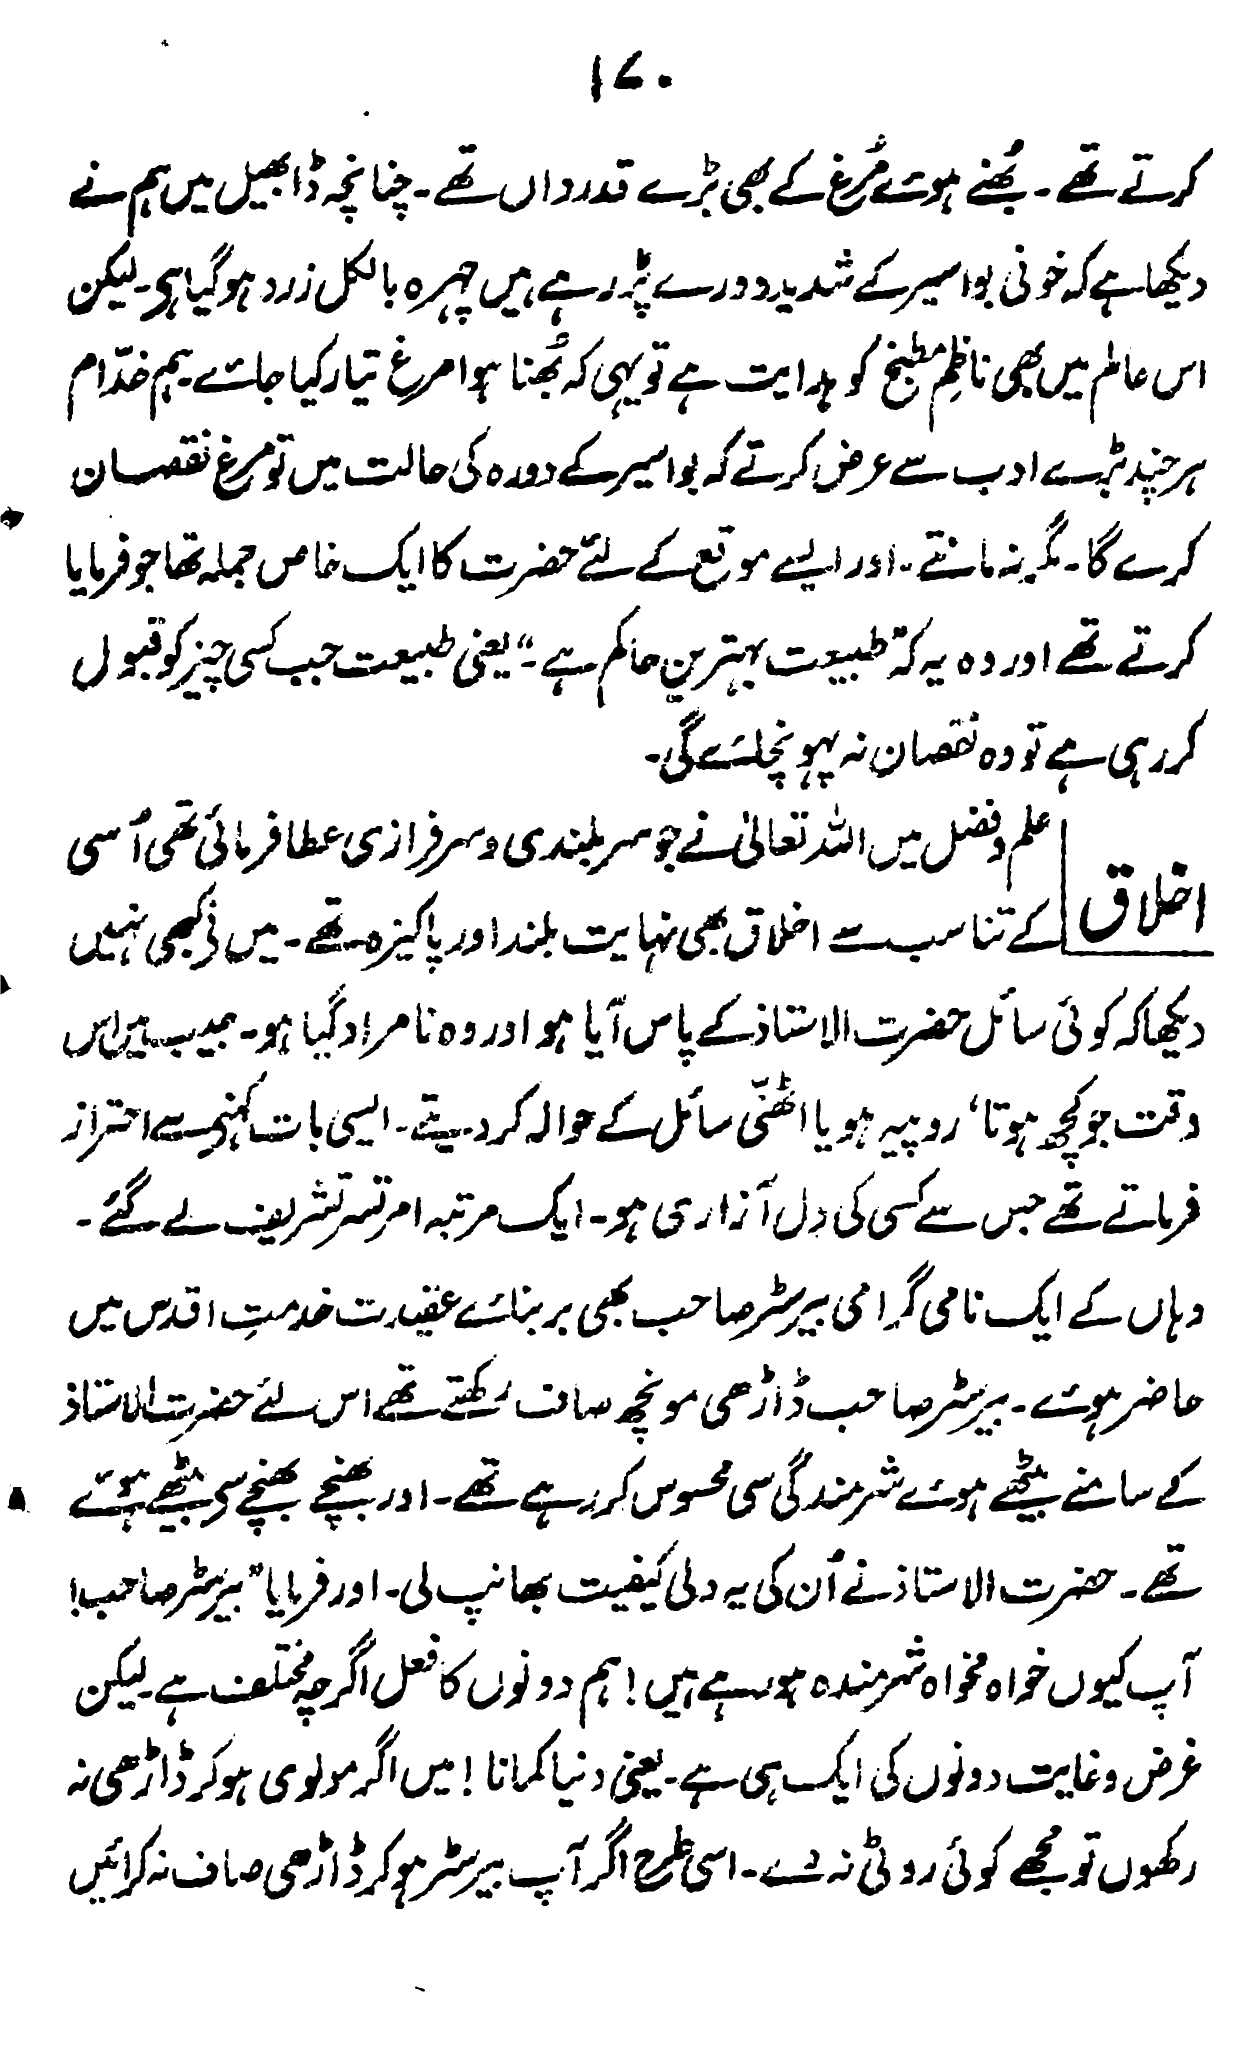 ۱۷۰
کرتے تھے ۔ بُھنے ہوئے مُرغ کے بھی بڑے قدرداں تھے ۔ چنانچہ ڈابھیل میں ہم نے
دیکھا ہے کہ خونی بواسیر کے شدید دورے پڑ رہے ہیں چہرہ بالکل زرد ہو گیا ہی ۔ لیکن
اس عالم میں بھی ناظم مطبخ کو ہدایت ہے تو یہی کہ بُھنا ہوا مرغ تیار کیا جائے ۔ ہم خدّام
ہر چند بڑے ادب سے عرض کرتے کہ بواسیر کے دورہ کی حالت میں تو مرغ نقصان
کرے گا ۔ مگر نہ مانتے ۔ اور ایسے موقع کے لئے حضرت کا ایک خاص جملہ تھا جو فرمایا
کرتے تھے اور وہ یہ کہ "طبیعت بہترین حاکم ہے ۔" یعنی طبیعت جب کسی چیز کو قبول
کر رہی ہے تو وہ نقصان نہ پہونچائے گی ۔
اخلاق
علم و فضل میں اللہ تعالیٰ نے جو سربلندی و سرفرازی عطا فرمائی تھی اُسی
کے تناسب سے اخلاق بھی نہایت بلند اور پاکیزہ تھے ۔ میں نے کبھی نہیں
دیکھا کہ کوئی سائل حضرت الاستاذ کے پاس آیا ہو اور وہ نامراد گیا ہو ۔ جیب میں اس
وقت جو کچھ ہوتا، روپیہ ہو یا اٹھنّی سائل کے حوالہ کر دیتے ۔ ایسی بات کہنے سے احتراز
فرماتے تھے جس سے کسی کی دل آزاری ہو ۔ ایک مرتبہ امرتسر تشریف لے گئے ۔
وہاں کے ایک نامی گرامی بیرسٹر صاحب بھی بربنائے عقیدت خدمتِ اقدس میں
حاضر ہوئے ۔ بیرسٹر صاحب ڈاڑھی مونچھ صاف رکھتے تھے اس لئے حضرت الاستاذ
کے سامنے بیٹھے ہوئے شرمندگی سی محسوس کر رہے تھے ۔ اور بھنچے بھنچے سے بیٹھے ہوئے
تھے ۔ حضرت الاستاذ نے اُن کی یہ دلی کیفیت بھانپ لی ۔ اور فرمایا "بیرسٹر صاحب!
آپ کیوں خواہ مخواہ شرمندہ ہو رہے ہیں! ہم دونوں کا فعل اگرچہ مختلف ہے ۔ لیکن
غرض و غایت دونوں کی ایک ہی ہے ۔ یعنی دنیا کمانا! میں اگر مولوی ہو کر ڈاڑھی نہ
رکھوں تو مجھے کوئی روٹی نہ دے ۔ اسی طرح اگر آپ بیرسٹر ہو کر ڈاڑھی صاف نہ کرائیں